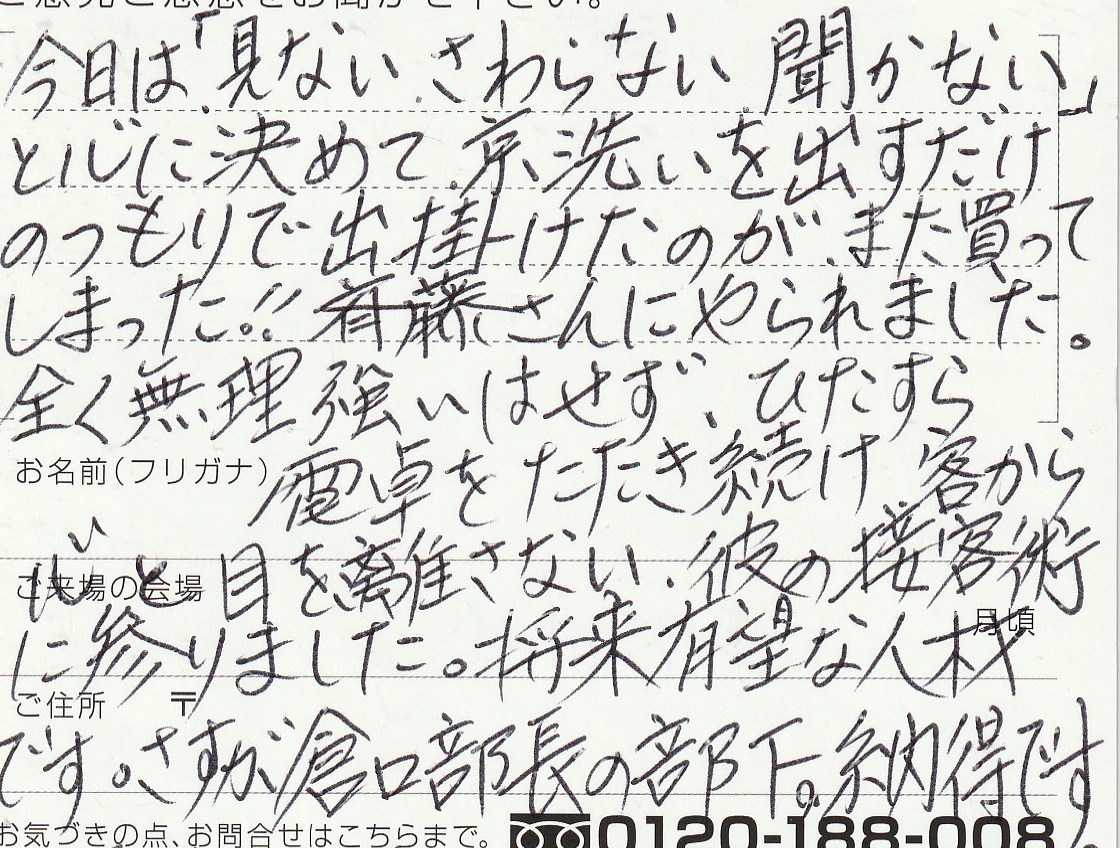 ご意見ご感想をお聞かせ下さい。
今日は「見ない さわらない 聞かない」
と心に決めて、京洗いを出すだけ
のつもりで出掛けたのが、また買って
しまった!! 斉藤さんにやられました。
全く無理強いはせず、ひたすら
お名前(フリガナ)
電卓をたたき続け 客から
ご来場の会場
心と目を離さない、彼の接客術
月頃
に参りました。将来有望な人材
ご住所 〒
です。さすが倉口部長の部下。納得です
お気づきの点、お問合せはこちらまで。 0120-188-008